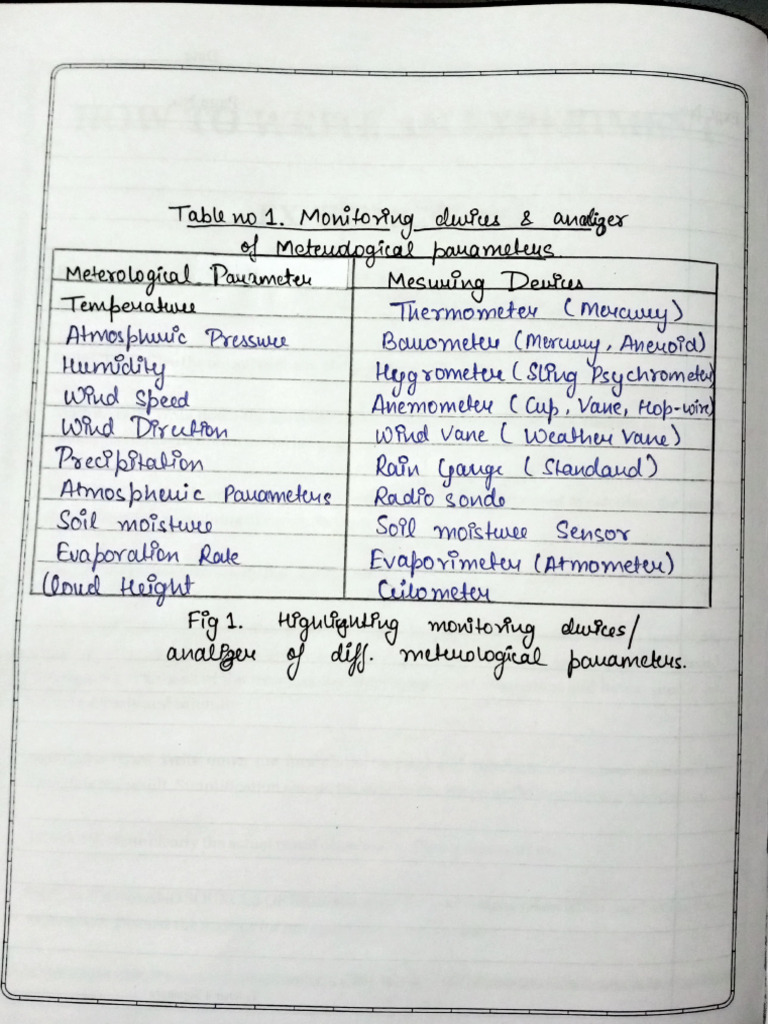 Table no 1. Monitoring devices & analizer
of Meterological parameters.
Meterological Parameter Mesuring Devices
Temperature Thermometer (Mercury)
Atmospheric Pressure Barometer (Mercury, Aneroid)
Humidity Hygrometer (Sling Psychrometer)
Wind Speed Anemometer (Cup, Vane, Hop-wire)
Wind Direction Wind Vane (Weather Vane)
Precipitation Rain Gauge (Standard)
Atmospheric Parameters Radio sonde
Soil moisture Soil moisture Sensor
Evaporation Rate Evaporimeter (Atmometer)
Cloud Height Ceilometer
Fig 1. Highlighting monitoring devices/
analizer of diff. meterological parameters.